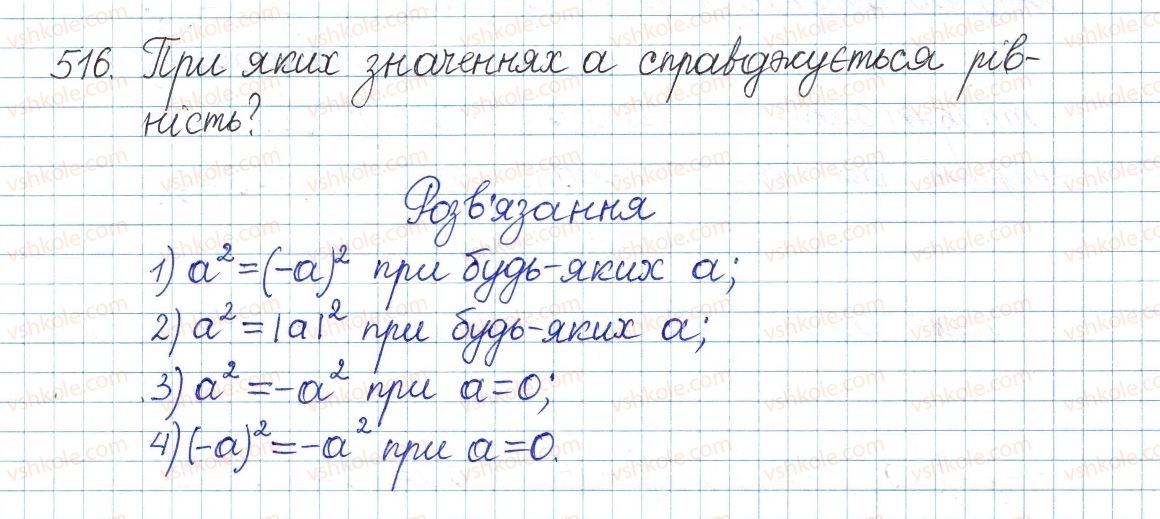 516. При яких значеннях а справджується рів-
ність?
Розв'язання
1) a² = (-a)² при будь-яких а;
2) a² = |a|² при будь-яких а;
3) a² = -a² при a=0;
4) (-a)² = -a² при a=0.